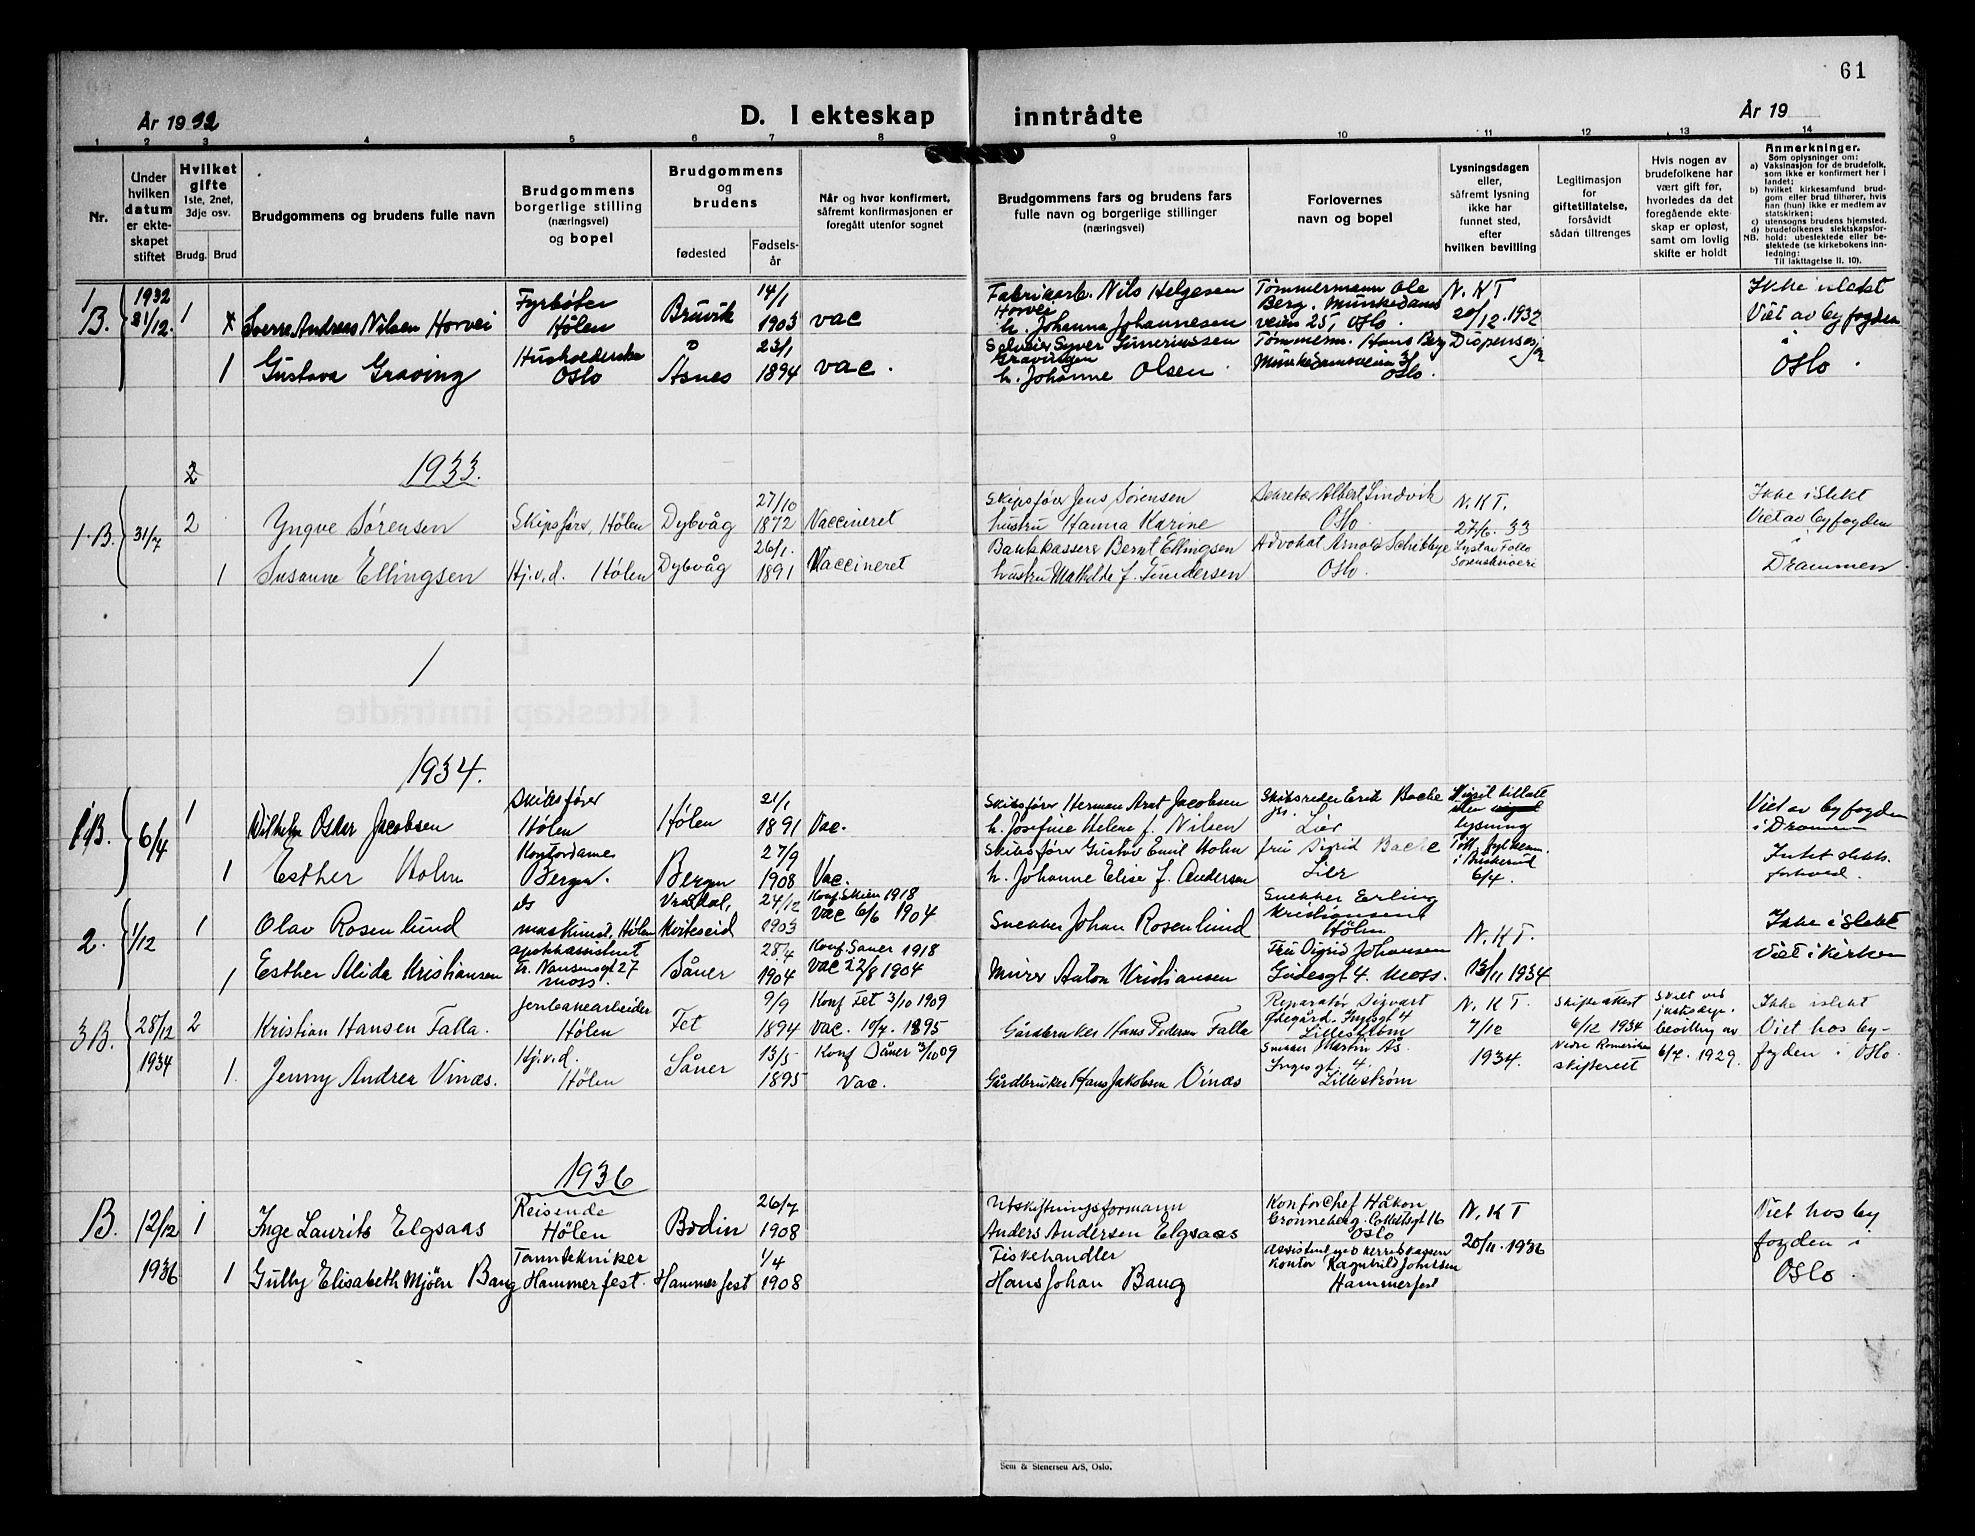 61
År 1932
D. I ekteskap inntrådte
År 19
1 2 3 4 5 6 7 8 9 10 11 12 13 14
Nr.
Under hvilken datum er ekte-skapet stiftet
Hvilket gifte 1ste, 2net, 3dje osv.
Brudg. Brud
Brudgommens og brudens fulle navn
Brudgommens borgerlige stilling (næringsvei) og bopel
Brudgommens og brudens
fødested
Fødsels-år
Når og hvor konfirmert, såfremt konfirmasjonen er foregått utenfor sognet
Brudgommens fars og brudens fars fulle navn og borgerlige stillinger (næringsvei)
Forlovernes navn og bopel
Lysningsdagen eller, såfremt lysning ikke har funnet sted, efter hvilken bevilling
Legitimasjon for giftetillatelse, forsåvidt sådan tiltrenges
Hvis nogen av brudefolkene har vært gift før, hvorledes da det foregående ekte-skap er opløst, samt om lovlig skifte er holdt
Anmerkninger.
Som oplysninger om:
a) Vaksinasjon for de brudefolk, som ikke er konfirmert her i landet;
b) hvilket kirkesamfund brud-gom eller brud tilhører, hvis han (hun) ikke er medlem av statskirken;
c) utensogns brudens hjemsted.
d) brudefolkenes slektskapsfor-hold: ubeslektede eller be-slektede (se kirkebokens inn-ledning:
NB.
Til iakttagelse II. 10).
1 B. 1932 31/12. 1 Sverre Andreas Nilsen Horvei Fyrbøter Hølen Bruvik 14/1 1903 vac
Fabrikarb. Nils Helgesen Horvei
h. Johanna Johannesen
Tømmermann Ole Berg. Munkedamsveien 25, Oslo.
N.K.T 20/12.1932
Ikke i slekt
Viet av byfogden
i
Oslo.
1 Gustava Graving Husholderske Oslo Åsnes 23/1 1894 vac.
Syver
h. Johanne Olsen.
Tømmerm. Hans Berg
Oslo.
1933.
2
1.B. 31/7 2 Yngve Sørensen Skipsfører, Hølen Dybvåg 27/10 1872 Vaccineret
Skipsfører Jens Sørensen
hustru Hanna Karine
Sekretær Albert Lindvik
Oslo
N.K.T.
27/6. 33
Ikke i slekt
Viet av byfogden
i
Drammen
1 Susanne Ellingsen Hj.v.d. Hølen Dybvåg 26/1. 1891 Vaccineret
Bankkasserer Bernt Ellingsen
hustru Mathilde f. Gundersen
Advokat Arnold Schibbye
Oslo.
1
1934.
1 B. 6/4 1 Wilhelm Oskar Jacobsen Skibsfører Hølen Hølen 21/1 1891 Vac.
Skibsfører Herman Arnt Jacobsen
h. Josefine Helene f. Nilsen
Skibsreder Erik Bache jr. Lier
lysning
Viet av byfogden
i Drammen
1 Esther Holm Kontordame Bergen. Bergen 27/9 1908 Vac.
Skibsfører Gustav Emil Holm
h. Johanne Elise f. Andersen
fru Sigrid Bache
Lier
i Buskerud
6/4.
Intet slekts-
forhold.
2. 1/12 1 Olav Rosenlund maskinist, Hølen Vrådal, Kviteseid 24/12 1903 Konf. Skien 1918 vac 6/6 1904
Snekker Johan Rosenlund
Snekker Erling Kristiansen Hølen
N.K.T.
13/11 1934
Ikke i slekt
Viet i kirken
1 Esther Alida Kristiansen Fr. Nansensgt 27 Moss. Såner 28/4 1904 Konf. Såner 1918 vac 22/8 1904
Murer Anton Kristiansen
Fru Sigrid Johansen
Gudesgt 4. Moss.
3 B. 28/12 1934 2 Kristian Hansen Falla. Jernbanearbeider Hølen Fet 9/9 1894 Konf Fet 3/10 1909 vac. 10/7. 1895
Gårdbruker Hans Pedersen Falla
Reparatør Sigvart Ødegård. Ingesgt 4 Lillestrøm
N.K.T.
7/12
1934.
Skifteattest 6/12 1934 Nedre Romerikes skifterett
Skilt ved justisdep. bevilling av 6/7. 1929.
Ikke i slekt
Viet hos by-
fogden i Oslo.
1. Jenny Andrea Vinæs. Hj.v.d. Hølen Såner 13/5 1895 Konf Såner 3/10 09 Vac.
Gårdbruker Hans Jakobsen Vinæs
Snekker Martin Ås. Ingesgt. 4. Lillestrøm
1936
B. 12/12 1936 1 Inge Laurits Elgsaas Reisende Hølen Bodin 26/7 1908
Utskiftningsformann
Anders Andersen Elgsaas
Kontorchef Håkon Grønneberg. Collettsgt 16 Oslo
N.K.T
20/11.1936
Viet hos by
fogden i
Oslo.
1 Gulby Elisabeth Mjøen Baug Tanntekniker Hammerfest. Hammerfest 1/4 1908
Fiskehandler
Hans Johan Baug
Assistent ved Herredskassen
Kontor Ragnhild Johnsen
Hammerfest
Sem & Stenersen A/S, Oslo.